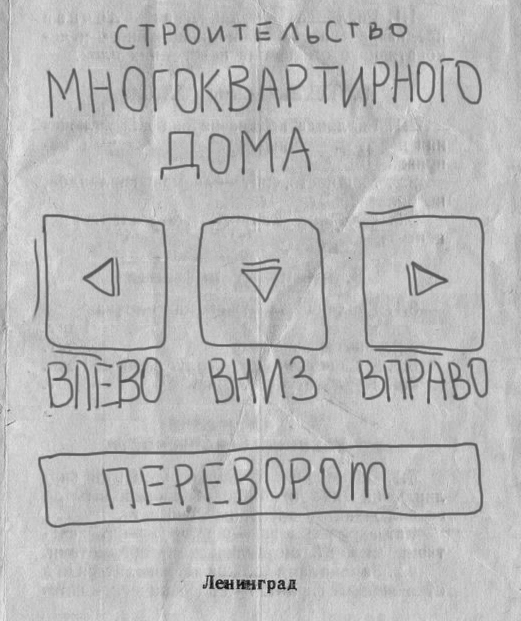 СТРОИТЕЛЬСТВО
МНОГОКВАРТИРНОГО
ДОМА
ВЛЕВО ВНИЗ ВПРАВО
ПЕРЕВОРОТ
Ленинград